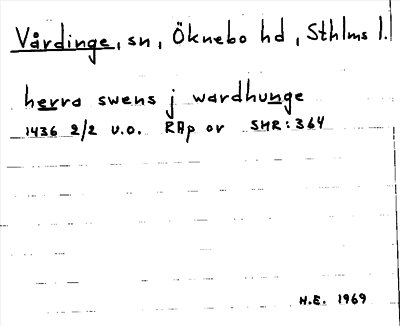 Vårdinge, sn, Öknebo hd, Sthlms l.
herra swens j wardhunge
1436 2/2 u.o. RAp or SMR:364
H.E. 1969